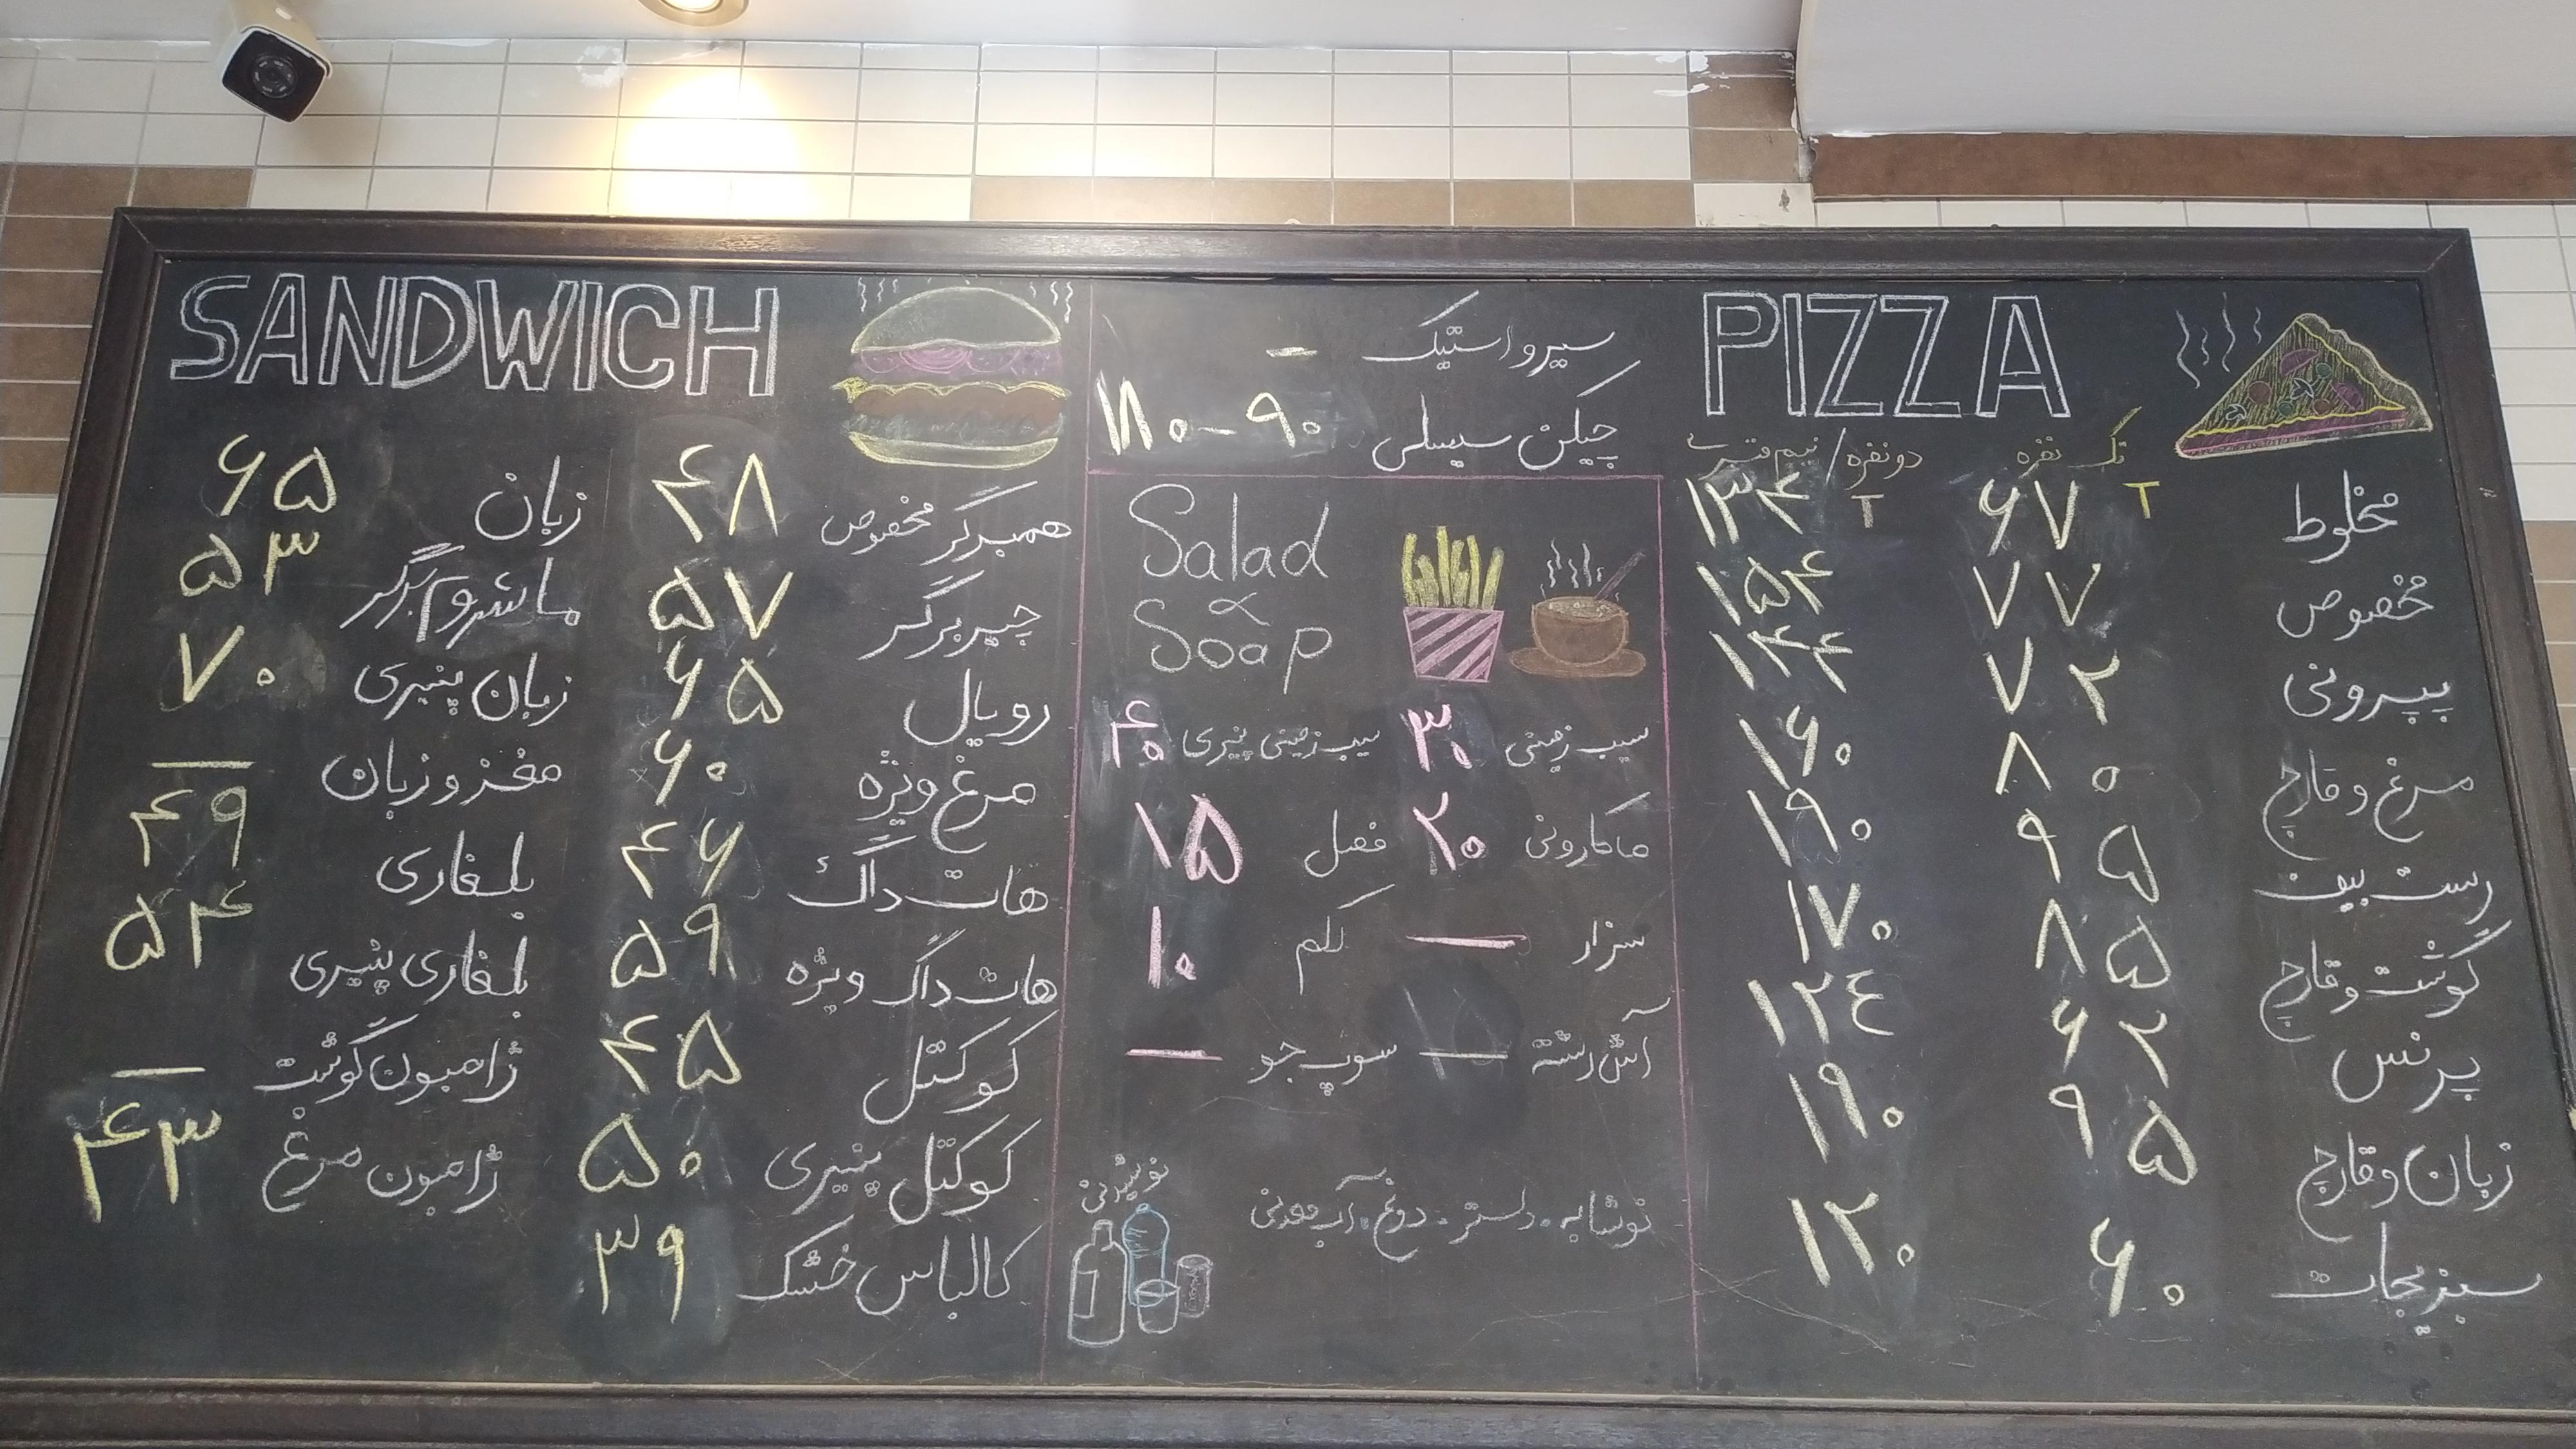 PIZZA
تک نفره دو نفره / نیم متری
مخلوط ۶۷ T ۱۳۴ T
مخصوص ۷۷ ۱۵۴
پپرونی ۷۲ ۱۴۴
مرغ و قارچ ۸۰ ۱۶۰
رست بیف ۹۵ ۱۹۰
گوشت و قارچ ۸۵ ۱۷۰
پرنس ۶۲ ۱۲٤
زبان و قارچ ۹۵ ۱۹۰
سبزیجات ۶۰ ۱۲۰
سیر و استیک –
چیکن سیسلی ۹۰ – ۱۸۰
Salad
&
Soap
سیب زمینی ۳۰ سیب زمینی پنیری ۴۰
ماکارونی ۲۰ فصل ۱۵
سزار — کلم ۱۰
آش رشته — سوپ جو —
نوشابه - دلستر - دوغ - آب معدنی
نوشیدنی
SANDWICH
همبرگر مخصوص ۴۸ زبان ۶۵
چیزبرگر ۵۷ ماشروم برگر ۵۳
رویال ۶۵ زبان پنیری ۷۰
مرغ ویژه ۶۰ مغز و زبان —
هات داگ ۴۶ بلغاری ۴۹
هات داگ ویژه ۵۹ بلغاری پنیری ۵۴
کوکتل ۴۵ ژامبون گوشت —
کوکتل پنیری ۵۰ ژامبون مرغ ۴۳
کالباس خشک ۳۹